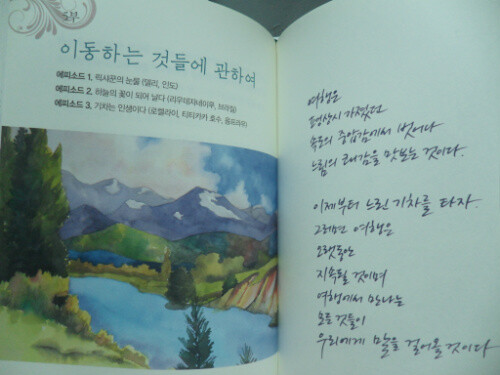 5부
이동하는 것들에 관하여
에피소드 1. 릭샤꾼의 눈물 (델리, 인도)
에피소드 2. 하늘의 꽃이 되어 날다 (리우데자네이루, 브라질)
에피소드 3. 기차는 인생이다 (로렐라이, 티티카카 호수, 융프라우)
여행은
평상시 가졌던
속도의 중압감에서 벗어나
느림의 쾌감을 맛보는 것이다.
이제부터 느린 기차를 타자.
그러면 여행은
오랫동안
지속될 것이며
여행에서 만나는
모든 것들이
우리에게 말을 걸어올 것이다